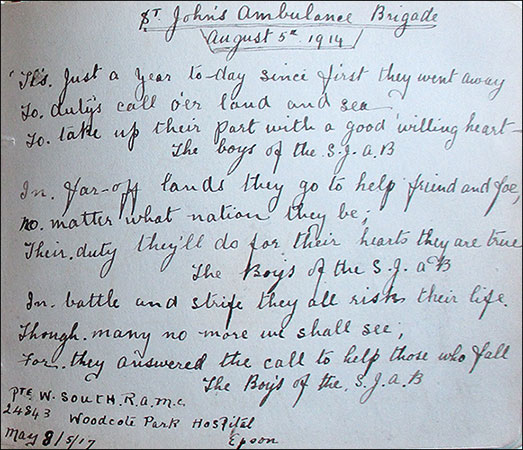 St. John's Ambulance Brigade
August 5th 1914
"It's. Just a year to-day since first they went away
To. duty's call o'er land and sea
To. take up their part with a good willing heart—
The boys of the. S.J.A.B
In. far-off lands they go to help friend and foe,
no. matter what nation they be;
Their. duty they'll do for their hearts they are true
The Boys of the S.J.A.B
In. battle and strife they all risk their life.
Though. many no more we shall see;
For. they answered the call to help those who fall
The Boys of the. S.J.A.B
Pte W. South. R.A.M.C.
24843 Woodcote Park Hospital
May 8/5/17 Epson